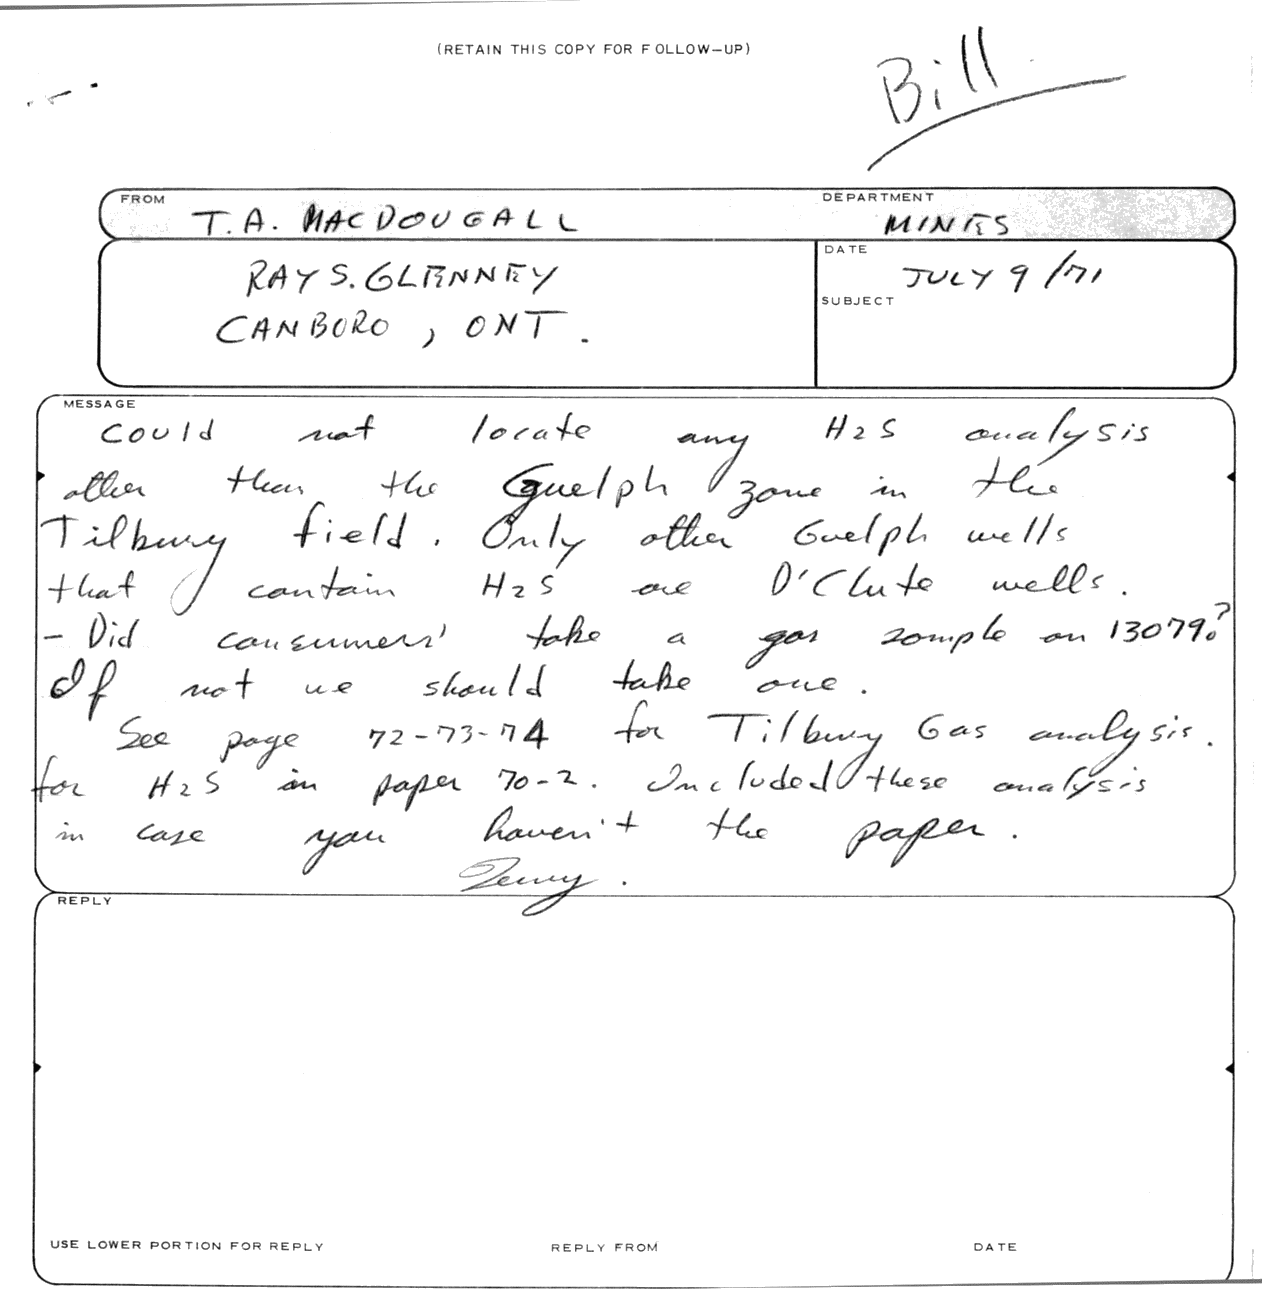 (RETAIN THIS COPY FOR FOLLOW-UP)
Bill
FROM
T.A. MACDOUGALL
DEPARTMENT
MINES
RAY S. GLENNEY
CANBORO, ONT.
DATE
JULY 9/71
SUBJECT
MESSAGE
could not locate any H2S analysis
other than the Guelph zone in the
Tilbury field. Only other Guelph wells
that contain H2S are D'Clute wells.
- Did consumers' take a gas sample on 13079?
If not we should take one.
See page 72-73-74 for Tilbury Gas analysis.
for H2S in paper 70-2. Included these analysis
in case you haven't the paper.
Terry.
REPLY
USE LOWER PORTION FOR REPLY
REPLY FROM
DATE